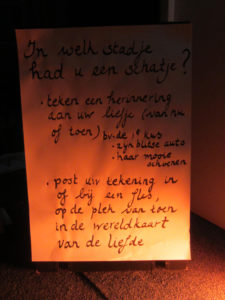 In welk stadje
had u een schatje?
• teken een herinnering
aan uw liefje (van nu
of toen) bv. de 1e kus
• zijn blitse auto
• haar mooie
schoenen
• post uw tekening in
of bij een fles,
op de plek van toen
in de wereldkaart
van de liefde